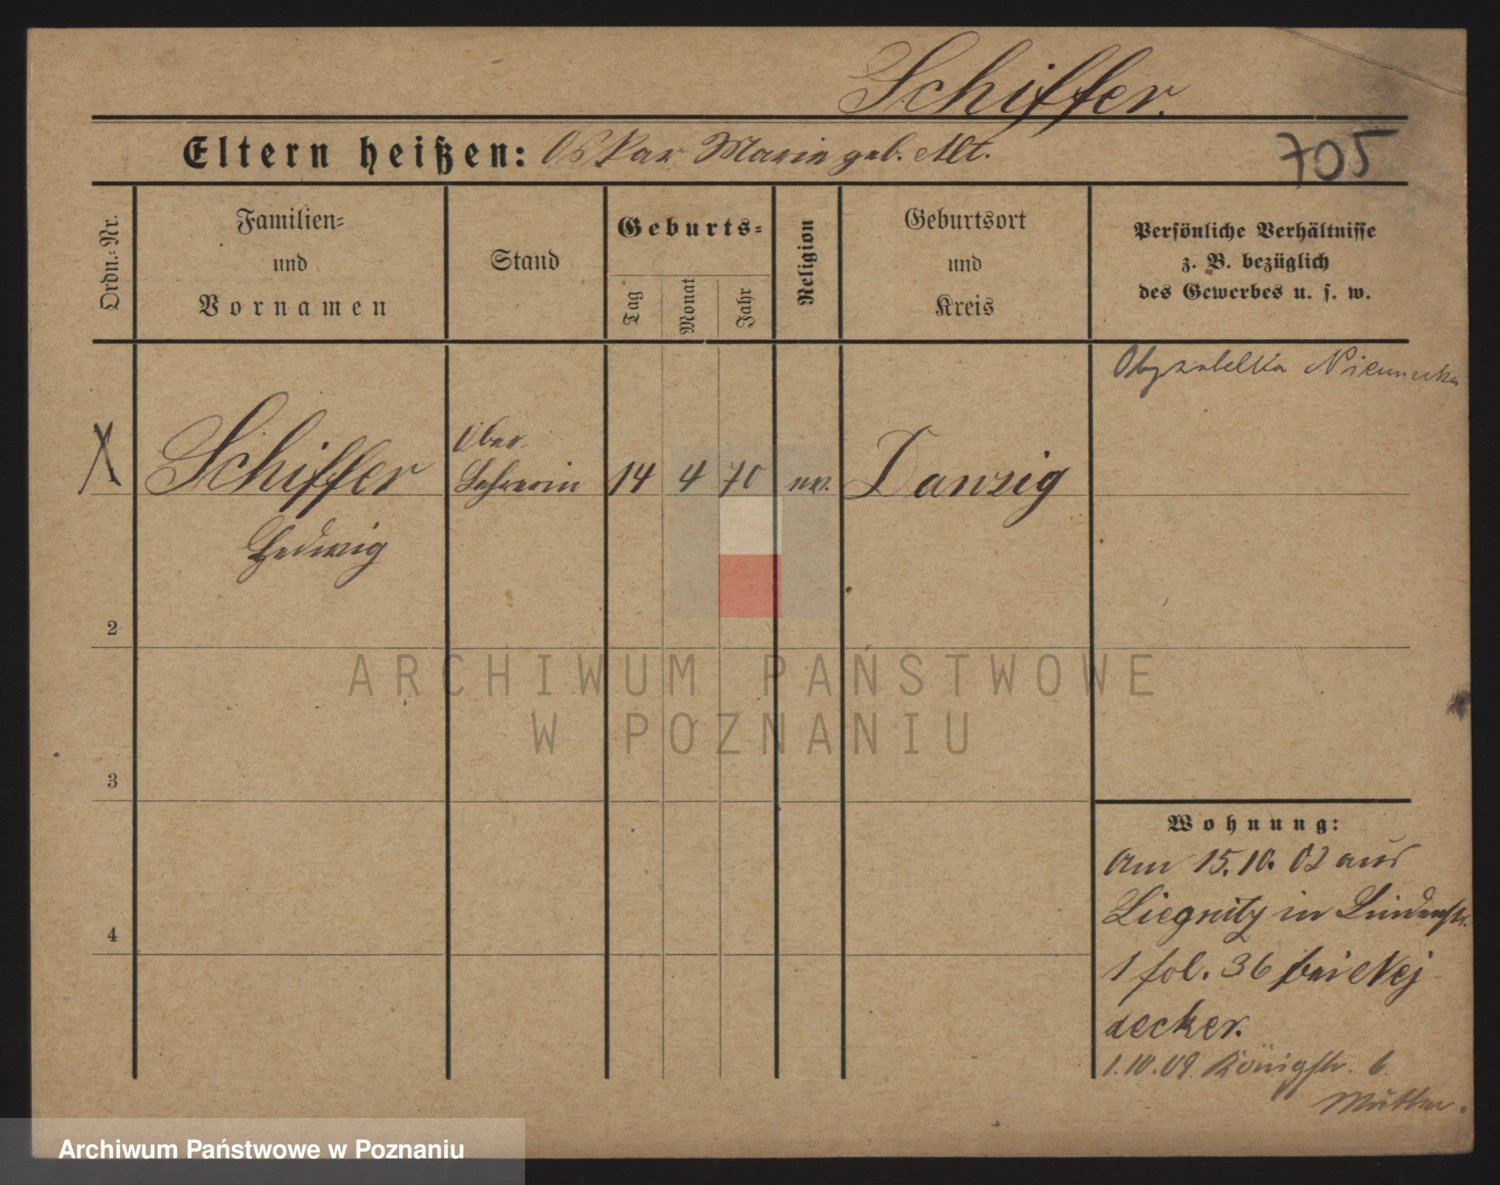 Schiffer.
Eltern heißen: Oskar Marie geb. Alt.
705
Ordn.-Nr.
Familien-
und
Vornamen
Stand
Geburts-
Tag
Monat
Jahr
Religion
Geburtsort
und
Kreis
Persönliche Verhältnisse
z. B. bezüglich
des Gewerbes u. s. w.
Obywatelka Niemiecka
X
Schiffer
Hedwig
Ober-
Lehrerin
14 4 70
ev.
Danzig
2
3
4
ARCHIWUM PAŃSTWOWE
W POZNANIU
Wohnung:
Am 15.10.02 aus
Liegnitz in Lindenstr.
1 fol. 36 bei Nej
decker.
1.10.09. Königstr. 6.
Mutter.
Archiwum Państwowe w Poznaniu